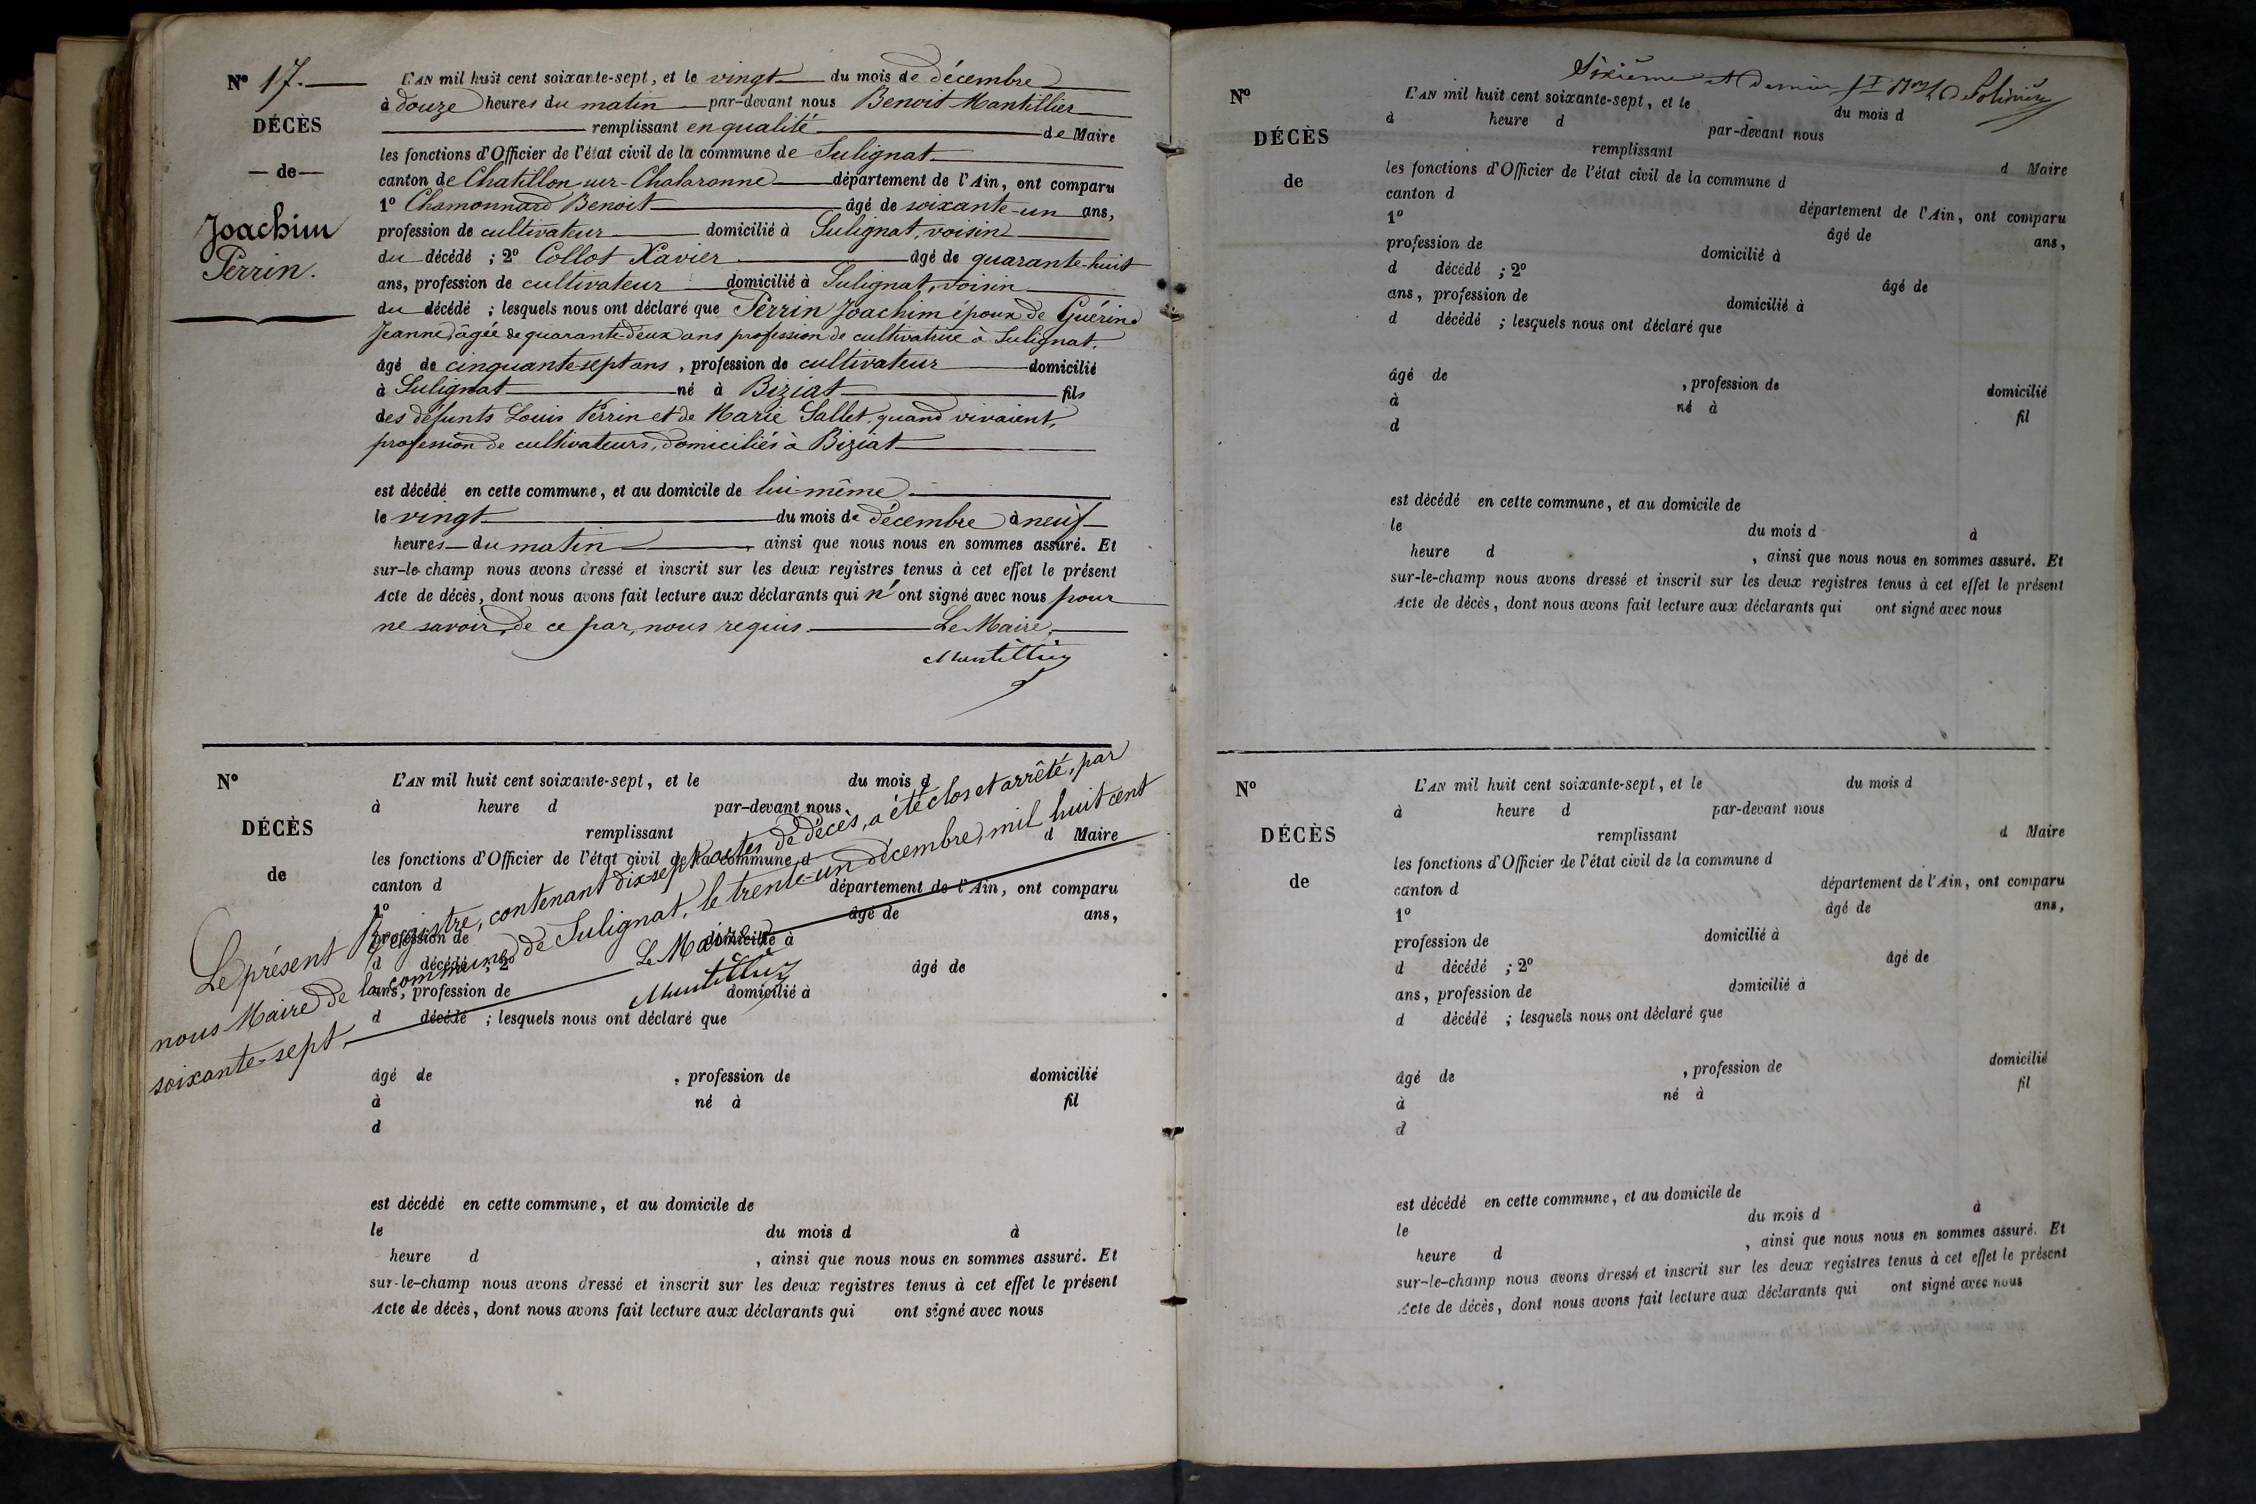 N° 17.
DÉCÈS
— de —
Joachim
Perrin.
L'AN mil huit cent soixante-sept, et le vingt du mois de décembre
à douze heures du matin par-devant nous Benoit Mantillier
remplissant en qualité de Maire
les fonctions d'Officier de l'état civil de la commune de Sulignat
canton de Chatillon sur-Chalaronne département de l'Ain, ont comparu
1° Chamonnard Benoit âgé de soixante-un ans,
profession de cultivateur domicilié à Sulignat, voisin
du décédé ; 2° Collot Xavier âgé de quarante-huit
ans, profession de cultivateur domicilié à Sulignat, voisin
du décédé ; lesquels nous ont déclaré que Perrin Joachim époux de Guérin
Jeanne, âgée de quarante-deux ans profession de cultivatrice à Sulignat.
âgé de cinquante-sept ans, profession de cultivateur domicilié
à Sulignat né à Biziat fils
des défunts Louis Perrin et de Marie Sallet, quand vivaient,
profession de cultivateurs, domiciliés à Biziat
est décédé en cette commune, et au domicile de lui même
le vingt du mois de décembre à neuf
heures du matin, ainsi que nous nous en sommes assuré. Et
sur-le-champ nous avons dressé et inscrit sur les deux registres tenus à cet effet le présent
Acte de décès, dont nous avons fait lecture aux déclarants qui n'ont signé avec nous pour
ne savoir, de ce par nous requis. Le Maire,
Mantillier
N°
DÉCÈS
de
L'AN mil huit cent soixante-sept, et le du mois d
à heure d par-devant nous
remplissant d Maire
les fonctions d'Officier de l'état civil de la commune d
canton d département de l'Ain, ont comparu
1° âgé de ans,
profession de domicilié à
d décédé ; 2° âgé de
ans, profession de domicilié à
d décédé ; lesquels nous ont déclaré que
Le présent Registre, contenant dix-sept actes de décès, a été clos et arrêté, par
nous Maire de la commune de Sulignat, le trente-un décembre, mil huit cent
soixante-sept. Le Maire
Mantillier
âgé de , profession de domicilié
à né à fil
d
est décédé en cette commune, et au domicile de
le du mois d à
heure d , ainsi que nous nous en sommes assuré. Et
sur-le-champ nous avons dressé et inscrit sur les deux registres tenus à cet effet le présent
Acte de décès, dont nous avons fait lecture aux déclarants qui ont signé avec nous
Sixième et dernier
N°
DÉCÈS
de
L'AN mil huit cent soixante-sept, et le du mois d
à heure d par-devant nous
remplissant d Maire
les fonctions d'Officier de l'état civil de la commune d
canton d département de l'Ain, ont comparu
1° âgé de ans,
profession de domicilié à
d décédé ; 2° âgé de
ans, profession de domicilié à
d décédé ; lesquels nous ont déclaré que
âgé de , profession de domicilié
à né à fil
d
est décédé en cette commune, et au domicile de
le du mois d à
heure d , ainsi que nous nous en sommes assuré. Et
sur-le-champ nous avons dressé et inscrit sur les deux registres tenus à cet effet le présent
Acte de décès, dont nous avons fait lecture aux déclarants qui ont signé avec nous
N°
DÉCÈS
de
L'AN mil huit cent soixante-sept, et le du mois d
à heure d par-devant nous
remplissant d Maire
les fonctions d'Officier de l'état civil de la commune d
canton d département de l'Ain, ont comparu
1° âgé de ans,
profession de domicilié à
d décédé ; 2° âgé de
ans, profession de domicilié à
d décédé ; lesquels nous ont déclaré que
âgé de , profession de domicilié
à né à fil
d
est décédé en cette commune, et au domicile de
le du mois d à
heure d , ainsi que nous nous en sommes assuré. Et
sur-le-champ nous avons dressé et inscrit sur les deux registres tenus à cet effet le présent
Acte de décès, dont nous avons fait lecture aux déclarants qui ont signé avec nous